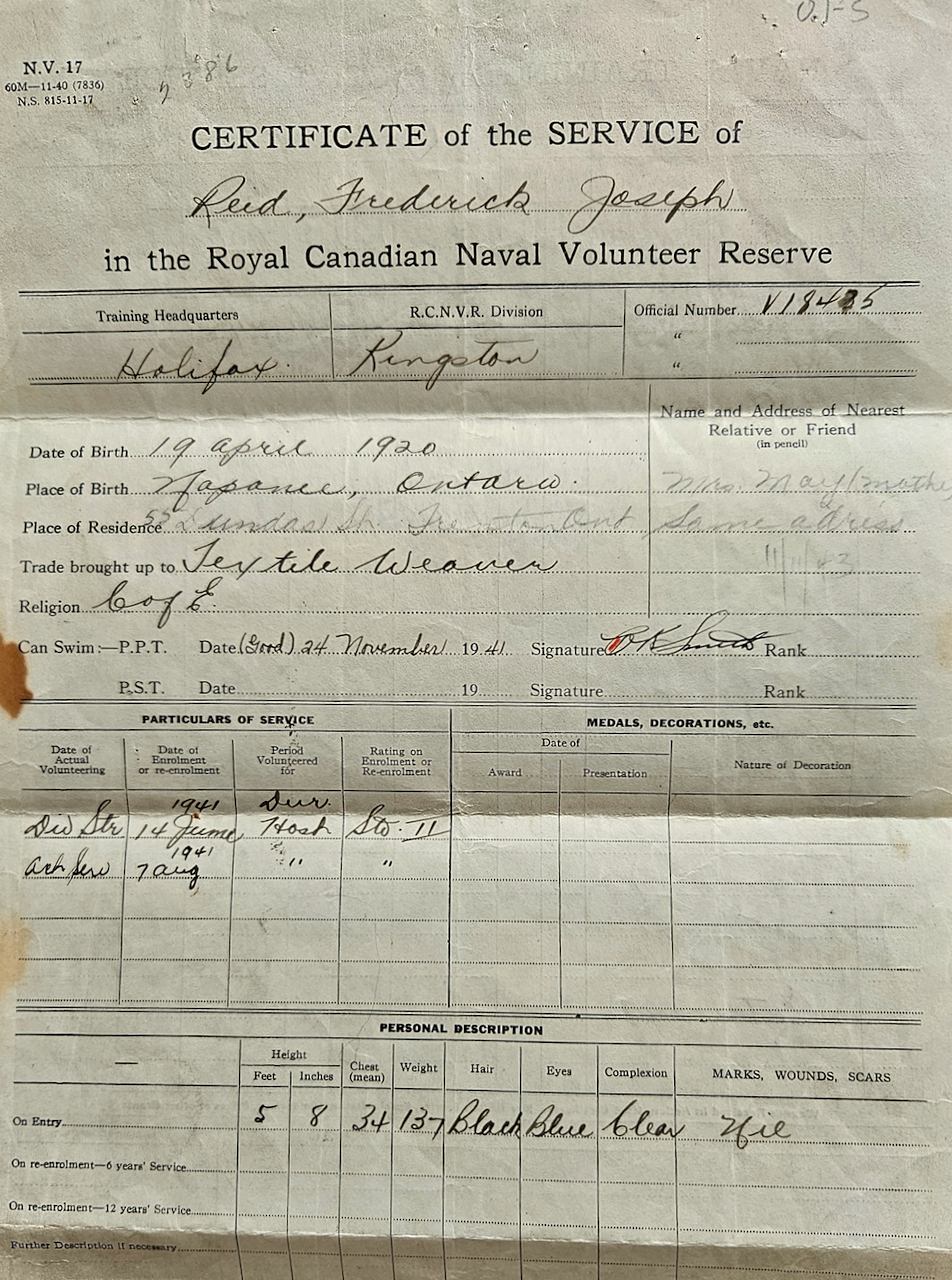 O.J-S
N.V. 17
60M—11-40 (7836)
N.S. 815-11-17
CERTIFICATE of the SERVICE of
Reid, Frederick Joseph
in the Royal Canadian Naval Volunteer Reserve
Training Headquarters R.C.N.V.R. Division Official Number V18435
“
Halifax Kingston “
Name and Address of Nearest
Relative or Friend
(in pencil)
Date of Birth 19 april 1920
Place of Birth Napanee, Ontario. Mrs. May (mother
Place of Residence Dundas St. Trenton Ont Same adress
Trade brought up to Textile Weaver 11/11/43
Religion C of E.
Can Swim:—P.P.T. Date (Good) 24 November 1941 Signature Smith Rank
P.S.T. Date 19 Signature Rank
PARTICULARS OF SERVICE MEDALS, DECORATIONS, etc.
Date of Actual Volunteering Date of Enrolment or re-enrolment Period Volunteered for Rating on Enrolment or Re-enrolment Date of Nature of Decoration
Award Presentation
1941 Dur.
Div Str 14 June Host Sto. II
1941
Act Serv 7 aug " "
PERSONAL DESCRIPTION
— Height Chest (mean) Weight Hair Eyes Complexion MARKS, WOUNDS, SCARS
Feet Inches
On Entry 5 8 34 137 Black Blue Clear Nil
On re-enrolment—6 years' Service
On re-enrolment—12 years' Service
Further Description if necessary